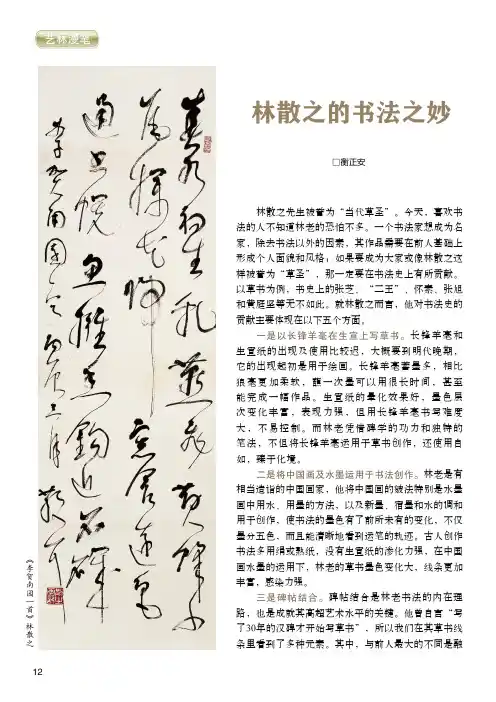 艺林漫笔
春水初生乳燕飛黄蜂小
尾撲花歸窓含遠色
通書幌魚擁香鈎近石磯
李賀南園
《李贺南园一首》林散之
林散之的书法之妙
□衡正安
林散之先生被誉为“当代草圣”。今天，喜欢书
法的人不知道林老的恐怕不多。一个书法家想成为名
家，除去书法以外的因素，其作品需要在前人基础上
形成个人面貌和风格；如果要成为大家或像林散之这
样被誉为“草圣”，那一定要在书法史上有所贡献。
以草书为例，书史上的张芝、“二王”、怀素、张旭
和黄庭坚等无不如此。就林散之而言，他对书法史的
贡献主要体现在以下五个方面。
一是以长锋羊毫在生宣上写草书。长锋羊毫和
生宣纸的出现及使用比较迟，大概要到明代晚期，
它的出现起初是用于绘画。长锋羊毫蓄墨多，相比
狼毫更加柔软，蘸一次墨可以用很长时间，甚至
能完成一幅作品。生宣纸的晕化效果好，墨色层
次变化丰富，表现力强，但用长锋羊毫书写难度
大，不易控制。而林老凭借碑学的功力和独特的
笔法，不但将长锋羊毫运用于草书创作，还使用自
如，臻于化境。
二是将中国画及水墨运用于书法创作。林老是有
相当造诣的中国画家，他将中国画的皴法特别是水墨
画中用水、用墨的方法，以及新墨、宿墨和水的调和
用于创作，使书法的墨色有了前所未有的变化，不仅
墨分五色，而且能清晰地看到运笔的轨迹。古人创作
书法多用绢或熟纸，没有生宣纸的渗化力强，在中国
画水墨的运用下，林老的草书墨色变化大、线条更加
丰富，感染力强。
三是碑帖结合。碑帖结合是林老书法的内在理
路，也是成就其高超艺术水平的关键。他曾自言“写
了30年的汉碑才开始写草书”，所以我们在其草书线
条里看到了多种元素。其中，与前人最大的不同是融
12